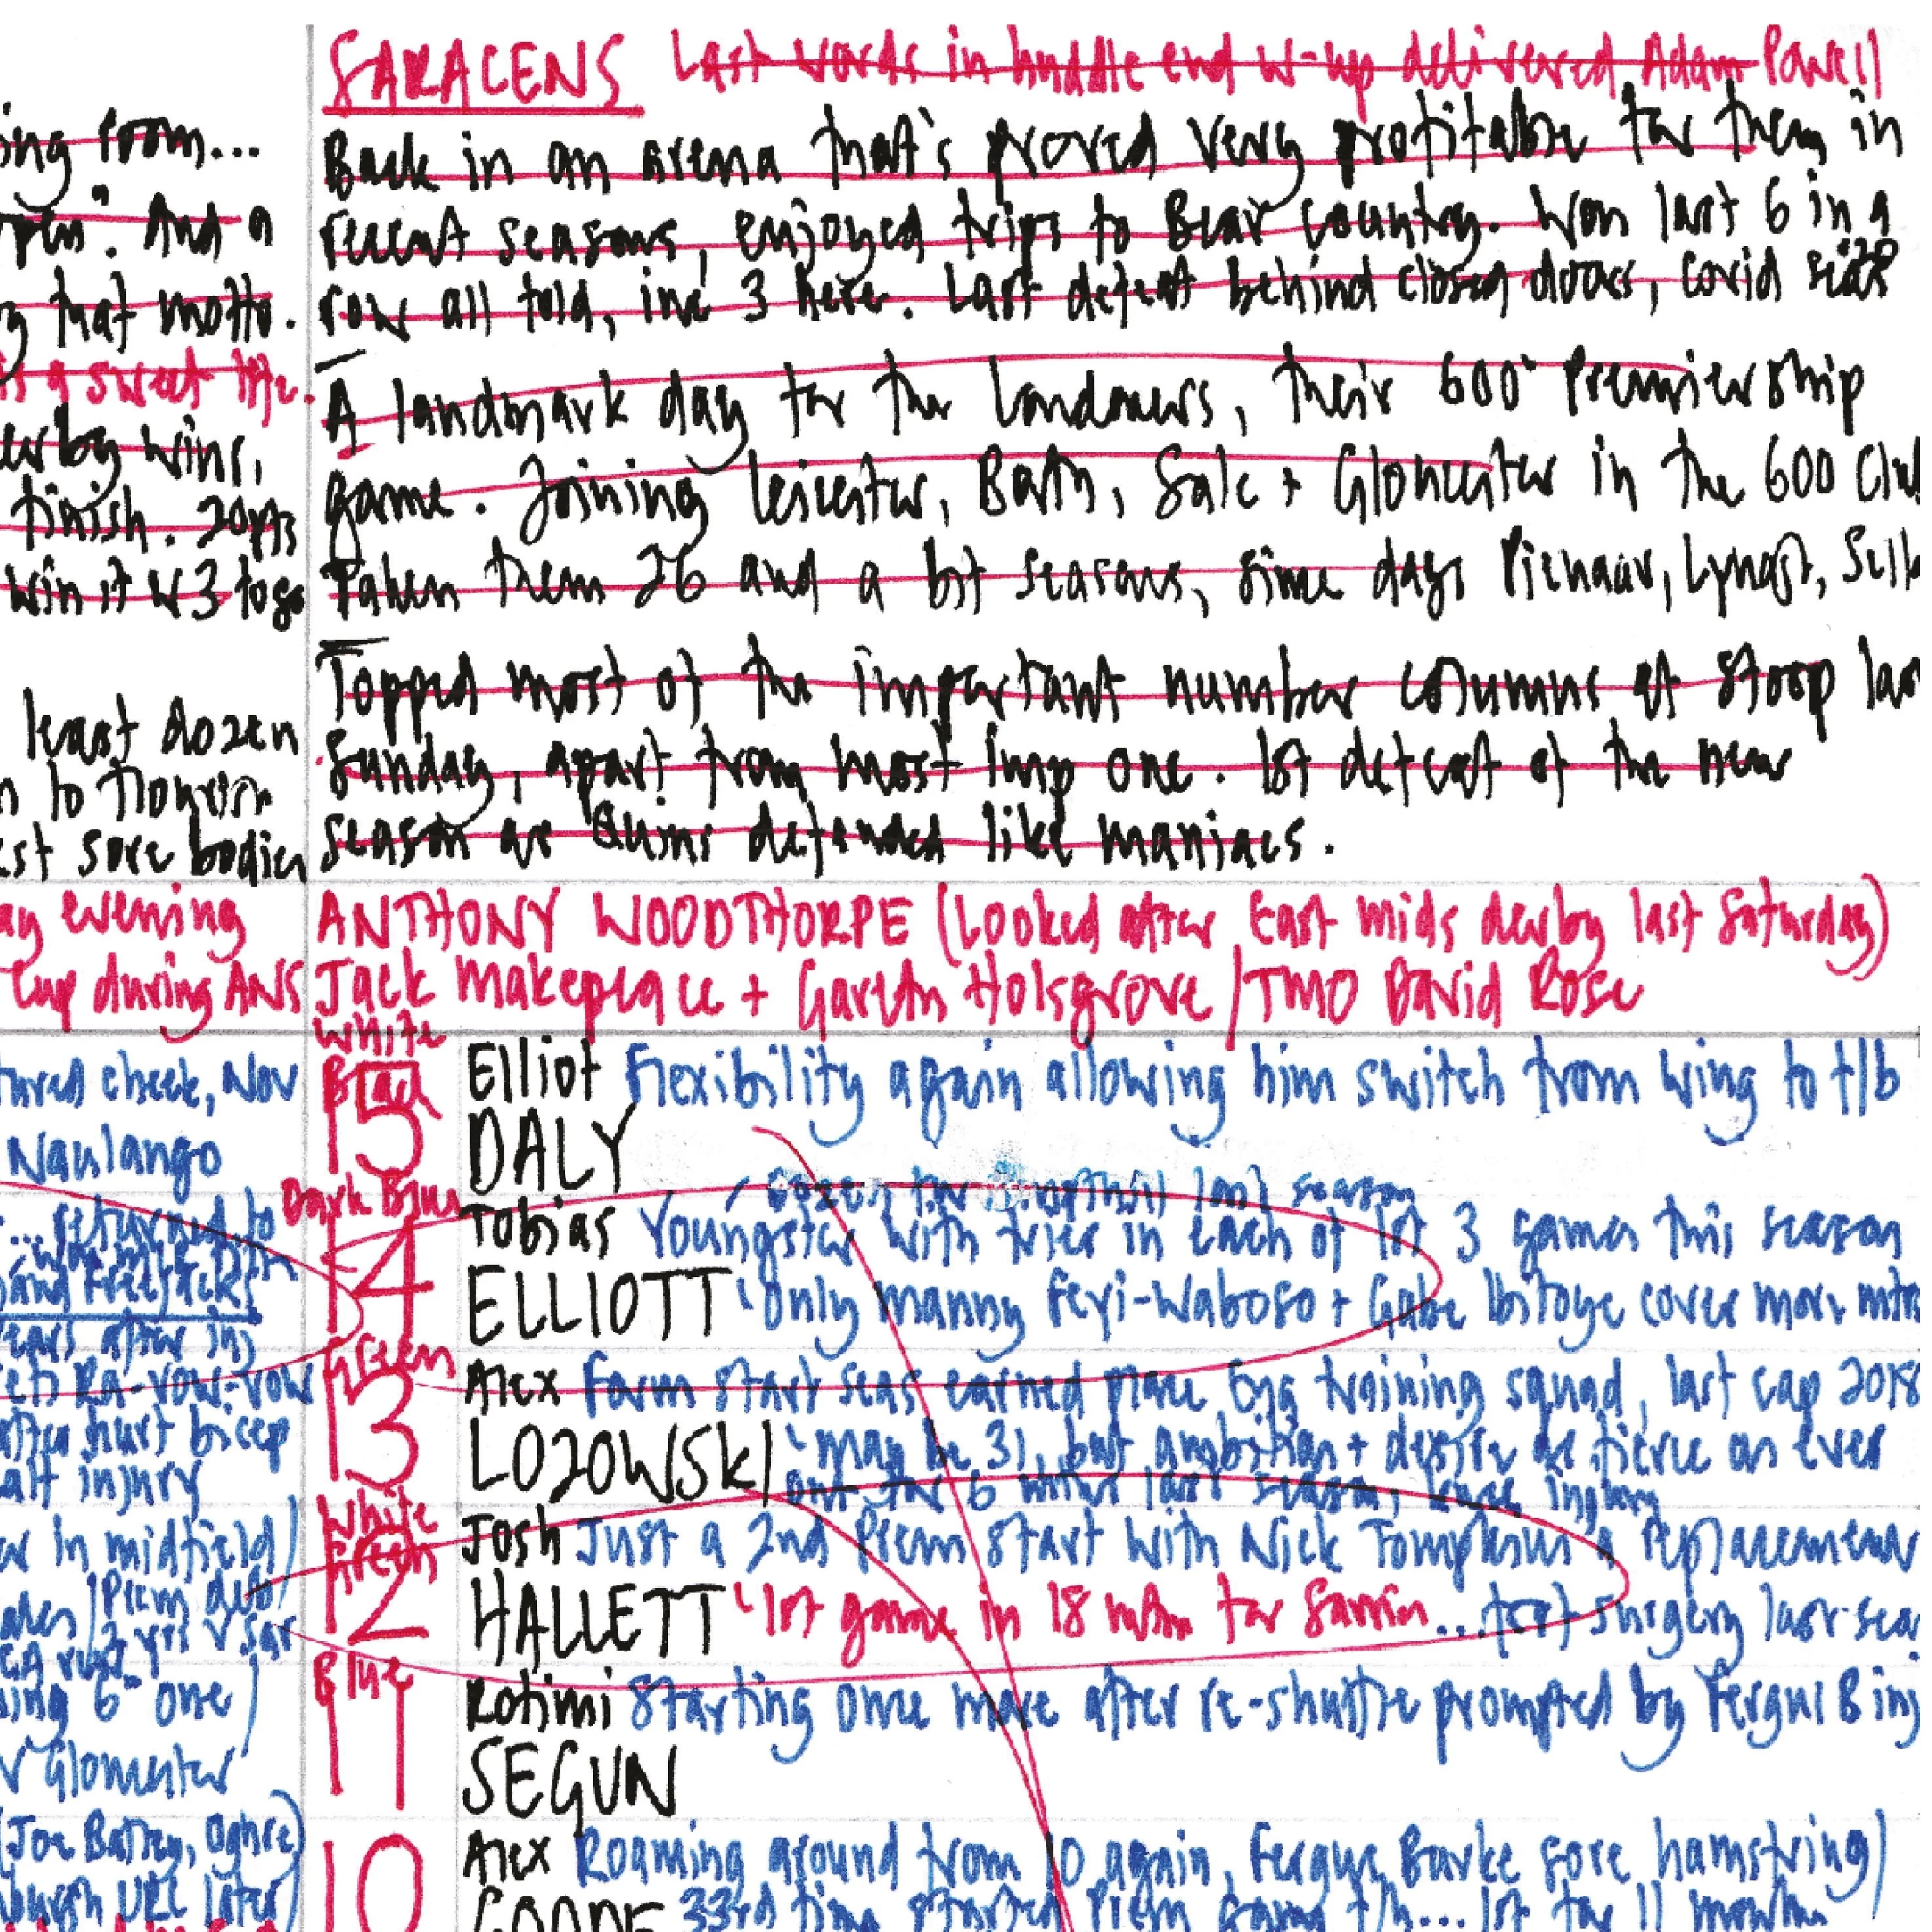 SARACENS Last words in huddle end w-up delivered Adam Powell
ing room...
Back in an arena that's proved very profitable for them in
open". And a
recent seasons, enjoyed trips to Bear Country. Won last 6 in a
that motto.
row all told, inc 3 here. Last defeat behind closed doors, covid seas '20
a sweet
A landmark day for the Londoners, their 600th Premiership
wins,
game. Joining Leicester, Bath, Sale + Gloucester in the 600 Club
finish. 20pts
Taken them 26 and a bit seasons, since days Pienaar, Lynagh, Sella
win it w 3 to go
Topped most of the important number columns at Stoop last
least dozen
Sunday, apart from most imp one. 1st defeat of the new
to flourish
season as Quins defended like maniacs.
sore bodies
evening
ANTHONY WOODTHORPE (Looked after East Mids derby last Saturday)
Cup during ANS
Jack Makepeace + Gareth Holsgrove / TMO David Rose
White
Black
15
Elliot Flexibility again allowing him switch from wing to f/b
DALY
cheek, Nov
Naulango
Dark Blue
14
last season
Tobias Youngster with tries in each of 1st 3 games this season
ELLIOTT 'Only Manny Feyi-Waboso + Gabe Ibitoye cover more mtrs
returned to
Free Jacks
years after inj
Green
13
Alex Form start seas earned place Eng training squad, last cap 2018
LOZOWSKI 'May be 31, but ambition + desire as fierce as ever
out for 6 mths last season, knee injury
after hurt bicep
injury
White
Green
12
Josh Just a 2nd Prem start with Nick Tompkins' replacement
HALLETT '1st game in 18 mths for Sarries...foot surgery last sea
in midfield)
Prem deb
Blue
11
Rotimi Starting once more after re-shuffle prompted by Fergus B inj
SEGUN
6th one
v Gloucester
10
Alex Roaming around from 10 again, Fergus Burke sore hamstring)
GOODE 33rd time started Prem game f/h...1st for 11 months
(Joe Batley, Oghre)
URC later)